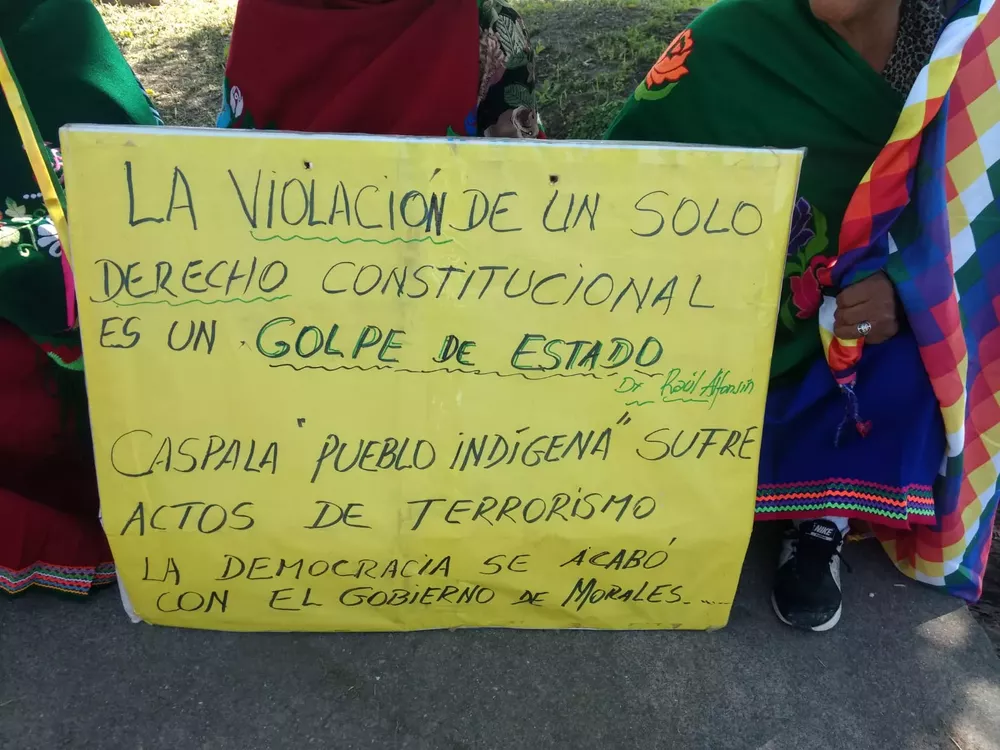 LA VIOLACIÓN DE UN SOLO
DERECHO CONSTITUCIONAL
ES UN GOLPE DE ESTADO
Dr Raúl Alfonsín
CASPALA "PUEBLO INDÍGENA" SUFRE
ACTOS DE TERRORISMO
LA DEMOCRACIA SE ACABÓ
CON EL GOBIERNO DE MORALES.....
NIKE